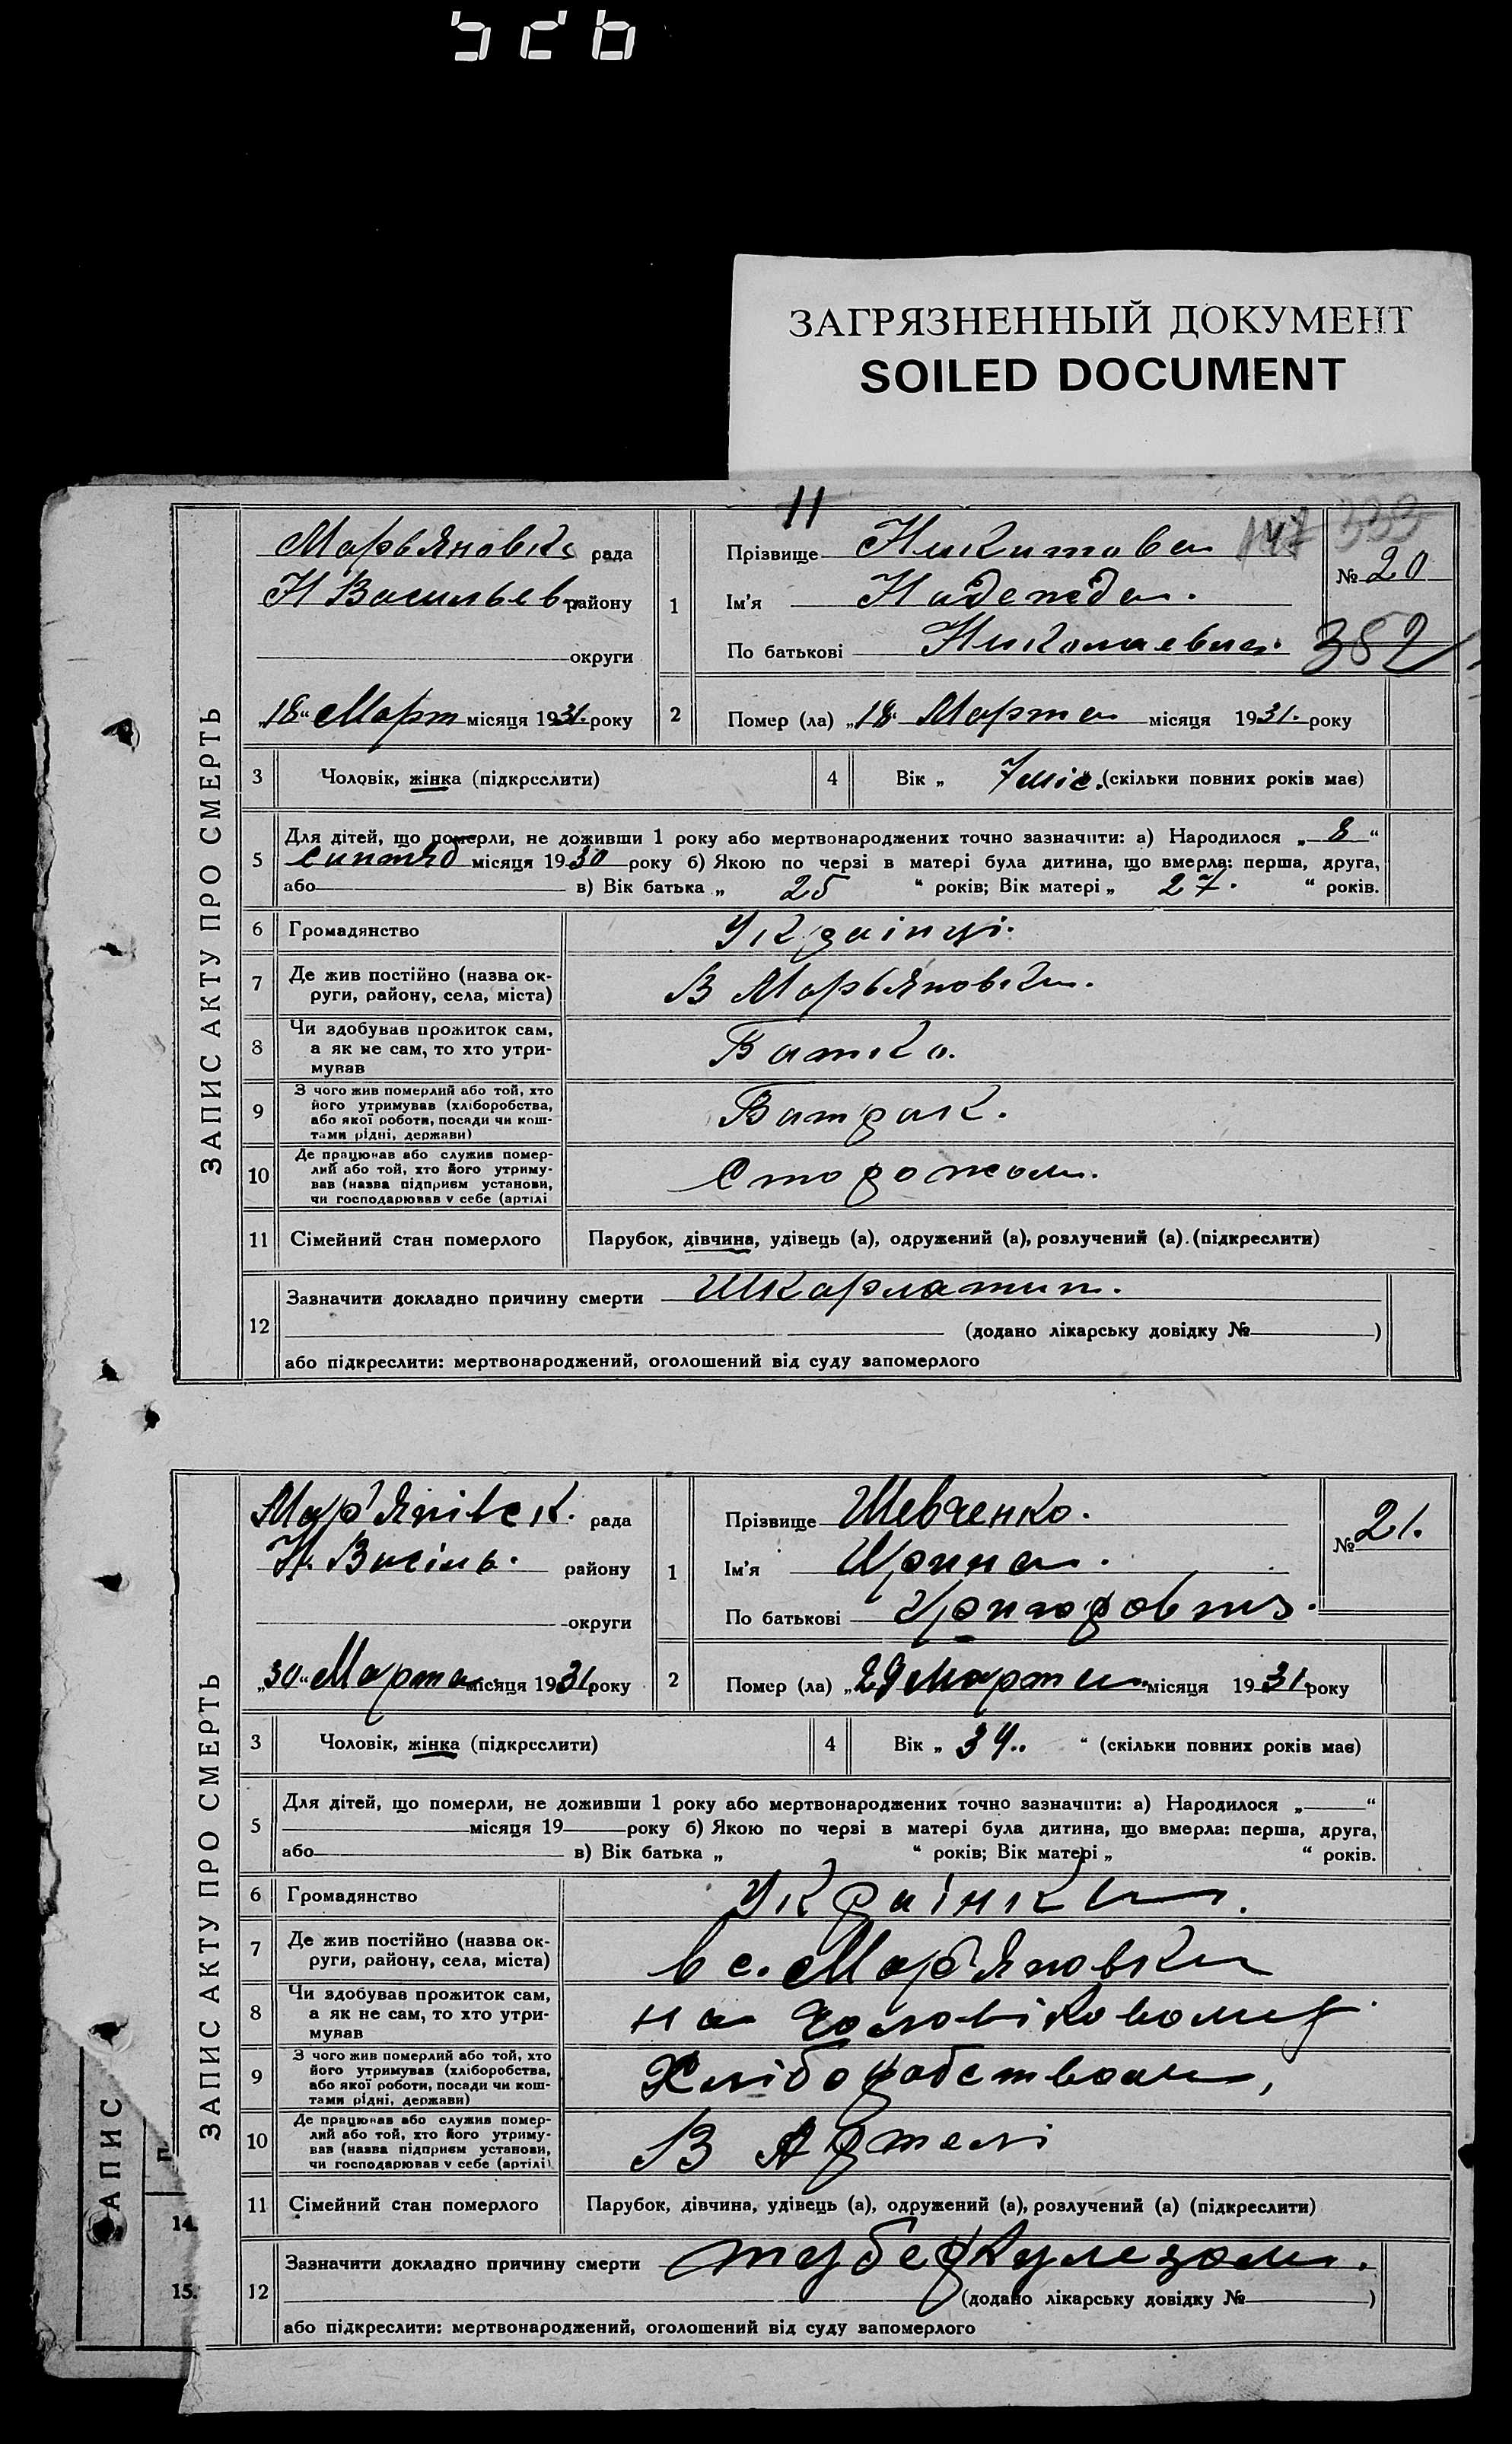 ЗАГРЯЗНЕННЫЙ ДОКУМЕНТ
SOILED DOCUMENT
11
147 333
ЗАПИС АКТУ ПРО СМЕРТЬ
Марьяновск рада
Н Васильев району
округи
„18“ Март місяця 1931. року
1
Прізвище Никитова
Ім'я Надежда.
По батькові Николаевна.
№ 20
352
2 Помер (ла) „18 Марта місяця 1931. року
3 Чоловік, жінка (підкреслити)
4 Вік „ 7 міс. (скільки повних років має)
5 Для дітей, що померли, не доживши 1 року або мертвонароджених точно зазначити: а) Народилося „ 8 “
місяця 1930 року б) Якою по черзі в матері була дитина, що вмерла: перша, друга,
або в) Вік батька „ 25 “ років; Вік матері „ 27. “ років.
6 Громадянство Українці.
7 Де жив постійно (назва ок-
руги, району, села, міста) В Марьяновки.
8 Чи здобував прожиток сам,
а як не сам, то хто утри-
мував Батько.
9 З чого жив померлий або той, хто
його утримував (хліборобства,
або якої роботи, посади чи кош-
тами рідні, держави) Батрак.
10 Де працював або служив помер-
лий або той, хто його утриму-
вав (назва підприєм установи,
чи господарював у себе (артілі Сторожом.
11 Сімейний стан померлого Парубок, дівчина, удівець (а), одружений (а), розлучений (а). (підкреслити)
12 Зазначити докладно причину смерти Шкарлатин.
(додано лікарську довідку № )
або підкреслити: мертвонароджений, оголошений від суду запомерлого
ЗАПИС АКТУ ПРО СМЕРТЬ
Мар'янівск. рада
Н. Васіль. району
округи
„30“ Марта місяця 1931 року
1
Прізвище Шевченко.
Ім'я Ирина.
По батькові
№ 21.
2 Помер (ла) „29 Марта місяця 1931. року
3 Чоловік, жінка (підкреслити)
4 Вік „ 34.. “ (скільки повних років має)
5 Для дітей, що померли, не доживши 1 року або мертвонароджених точно зазначити: а) Народилося „ “
місяця 19 року б) Якою по черзі в матері була дитина, що вмерла: перша, друга,
або в) Вік батька „ “ років; Вік матері „ “ років.
6 Громадянство Українка.
7 Де жив постійно (назва ок-
руги, району, села, міста) в с. Мар'яновки
8 Чи здобував прожиток сам,
а як не сам, то хто утри-
мував на Чоловіковому
9 З чого жив померлий або той, хто
його утримував (хліборобства,
або якої роботи, посади чи кош-
тами рідні, держави) Хліборобством,
10 Де працював або служив помер-
лий або той, хто його утриму-
вав (назва підприєм установи,
чи господарював у себе (артілі) В Артелі
11 Сімейний стан померлого Парубок, дівчина, удівець (а), одружений (а), розлучений (а) (підкреслити)
12 Зазначити докладно причину смерти туберкулезом.
(додано лікарську довідку № )
або підкреслити: мертвонароджений, оголошений від суду запомерлого
АПИС
П
14.
15.